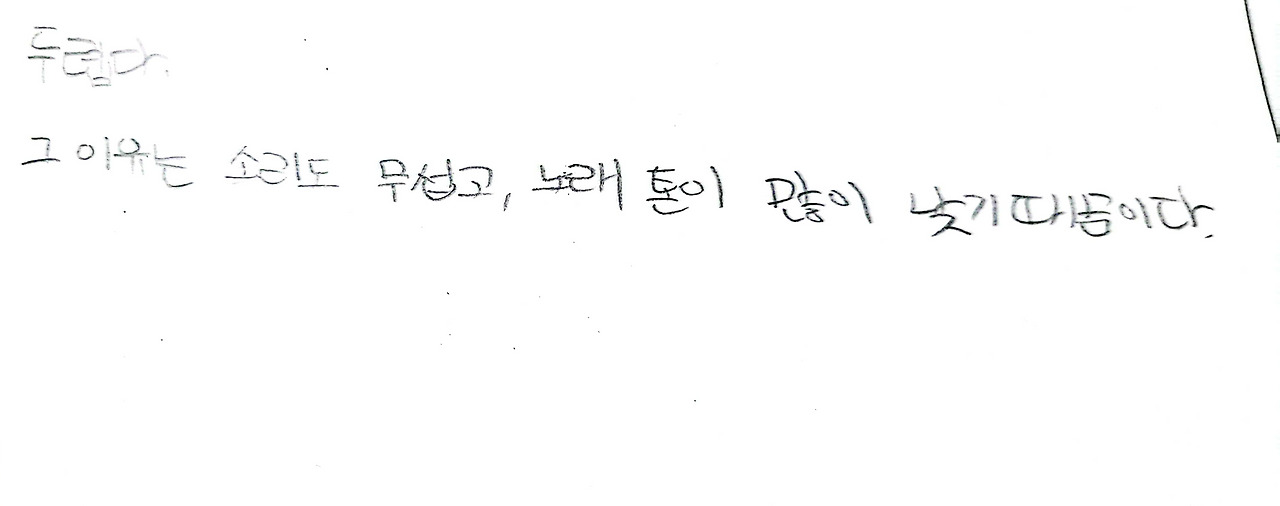 두렵다.
그 이유는 소리도 무섭고, 노래 톤이 많이 낮기 때문이다.